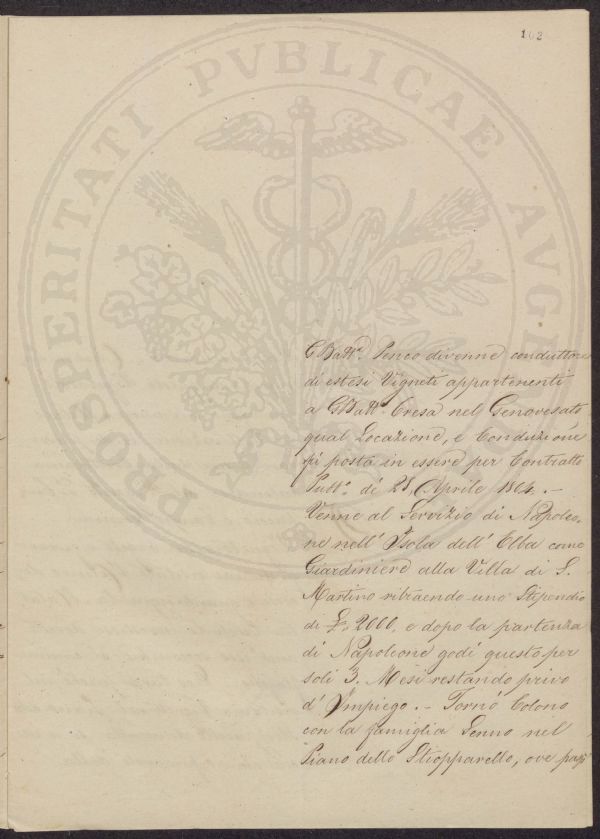 102
PROSPERITATI PVBLICAE AVGEN
GBatt.a Penco divenne conduttore
di estesi Vigneti appartenenti
a GBatt.a Cresa nel Genovesato
qual Locazione, e Conduzione
fù posta in essere per Contratto
Pubb.o di 28, Aprile 1804. –
Venne al Servizio di Napoleo-
ne nell' Isola dell' Elba come
Giardiniere alla Villa di S.
Martino ritraendo uno Stipendio
di £. 2000, e dopo la partenza
di Napoleone godi questo per
soli 3. Mesi restando privo
d' Impiego. – Tornò Colono
con la famiglia Senno nel
Piano dello Stiopparello, ove pagò